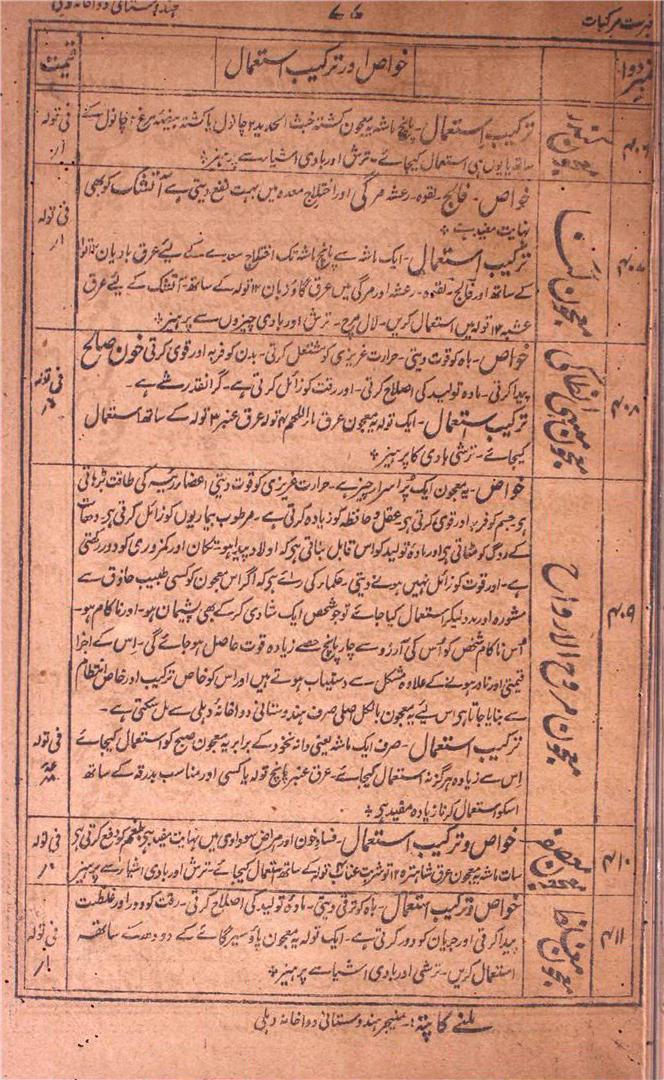 فہرست مرکبات
۷۷
ہندوستانی دواخانہ دہلی
نمبر دوا
خواص اور ترکیب استعمال
قیمت
۴۰۶
معجون
ترکیب استعمال۔ پانچ ماشہ یہ معجون کشتہ خبث الحدید ۲ چانول یا کشتہ بیضہ مرغ ۲ چانول کے
ساتھ یا یوں ہی استعمال کیجائے۔ ترش اور بادی اشیا سے پرہیز
فی تولہ
۴۰۷
معجون لنا
خواص۔ فالج۔ لقوہ۔ رعشہ مرگی اور اختلاج معدہ میں بہت نفع دیتی ہے آتشک کو بھی
نہایت مفید ہے
ترکیب استعمال۔ ایک ماشہ سے پانچ ماشہ تک اختلاج معدے کے لیے عرق بادیان ۱۲ تولہ
کے ساتھ اور فالج۔ لقوہ۔ رعشہ اور مرگی میں عرق گاؤزبان ۱۲ تولہ کے ساتھ۔ آتشک کے لیے عرق
عشبہ ۱۲ تولہ میں استعمال کریں۔ لال مرچ۔ ترش اور بادی چیزوں سے پرہیز
فی تولہ
۴۰۸
معجون مبہی انطاکی
خواص۔ باہ کو قوت دیتی۔ حرارت غریزی کو مشتعل کرتی۔ بدن کو فربہ اور قوی کرتی خون صالح
پیدا کرتی۔ مادہ تولید کی اصلاح کرتی۔ اور رقت کو زائل کرتی ہے۔ گرانقدر شے ہے۔
ترکیب استعمال۔ ایک تولہ یہ معجون عرق ماء اللحم ۴ تولہ عرق عنبر ۳ تولہ کے ساتھ استعمال
کیجائے۔ ترشی بادی کا پرہیز
فی تولہ
۴۰۹
معجون مروح الارواح
خواص۔ یہ معجون ایک پُر اسرار چیز ہے۔ حرارت غریزی کو قوت دیتی اعضاء رئیسہ کی طاقت بڑھاتی
ہے جسم کو فربہ اور قوی کرتی ہے عقل و حافظہ کو زیادہ کرتی ہے۔ مرطوب بیماریوں کو زائل کرتی ہے۔ دھات
کے روگ کو مٹاتی ہے اور مادہ تولید کو اس قابل بناتی ہے کہ اولاد پیدا ہو تکان اور کمزوری کو دور رکھتی
ہے۔ اور قوت کو زائل نہیں ہونے دیتی۔ حکماء کی رائے ہے کہ اگر اس معجون کو کسی طبیب حاذق سے
مشورہ اور مدد لیکر استعمال کیا جائے تو جو شخص ایک شادی کر کے بھی پشیمان ہو۔ اور ناکام ہو۔
اُس ناکام شخص کو اُس کی آرزو سے چار پانچ حصے زیادہ قوت حاصل ہو جائے گی۔ اِس کے اجزا
قیمتی اور نادر ہونے کے علاوہ مشکل سے دستیاب ہوتے ہیں اور اس کو خاص ترکیب اور خاص انتظام
سے بنایا جاتا ہے اس لیے یہ معجون بالکل اصلی صرف ہندوستانی دواخانہ دہلی سے مل سکتی ہے۔
ترکیب استعمال۔ صرف ایک ماشہ یعنی دانہ نخود کے برابر یہ معجون صبح کو استعمال کیجائے
اِس سے زیادہ ہرگز نہ استعمال کیجائے۔ عرق عنبر پانچ تولہ یا کسی اور مناسب بدرقہ کے ساتھ
اسکو استعمال کرنا زیادہ مفید ہے
فی تولہ
۴۱۰
معجون
خواص و ترکیب استعمال۔ فساد خون اور امراض سوداوی میں نہایت مفید ہے بلغم کو دفع کرتی ہے
سات ماشہ یہ معجون عرق شاہترہ ۱۲ تولہ شربت عناب ۲ تولہ کے ساتھ استعمال کیجائے۔ ترش اور بادی اشیا سے پرہیز
فی تولہ
۴۱۱
معجون مغلظ
خواص و ترکیب استعمال۔ باہ کو ترقی دیتی۔ مادہ تولید کی اصلاح کرتی۔ رقت کو دور اور غلظت
پیدا کرتی اور جریان کو دور کرتی ہے۔ ایک تولہ یہ معجون پاؤ سیر گائے کے دودھ کے ساتھ
استعمال کریں۔ ترشی اور بادی اشیا سے پرہیز
فی تولہ
ملنے کا پتہ:۔ منیجر ہندوستانی دواخانہ دہلی